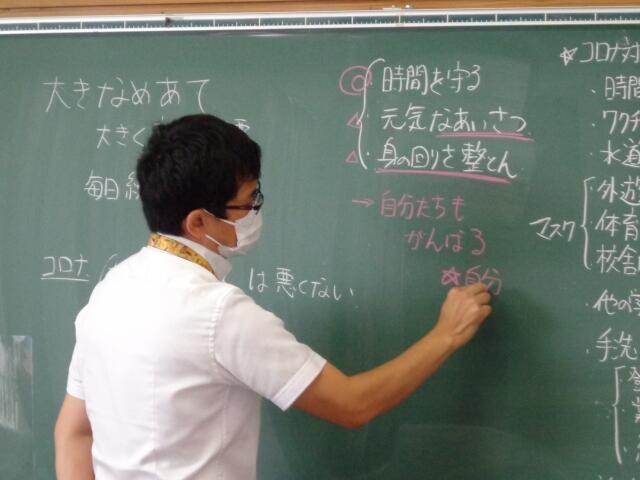 大きなめあて
大きく
毎日
コロナ
は悪くない
◎ 時間を守る
△ 元気なあいさつ
△ 身の回りさ整とん
→ 自分たちも
がんばる
☆自分
☆コロナ対
・時間
・ワクチ
・水道
マスク
外遊
体育
校舎
・他の学
・手先